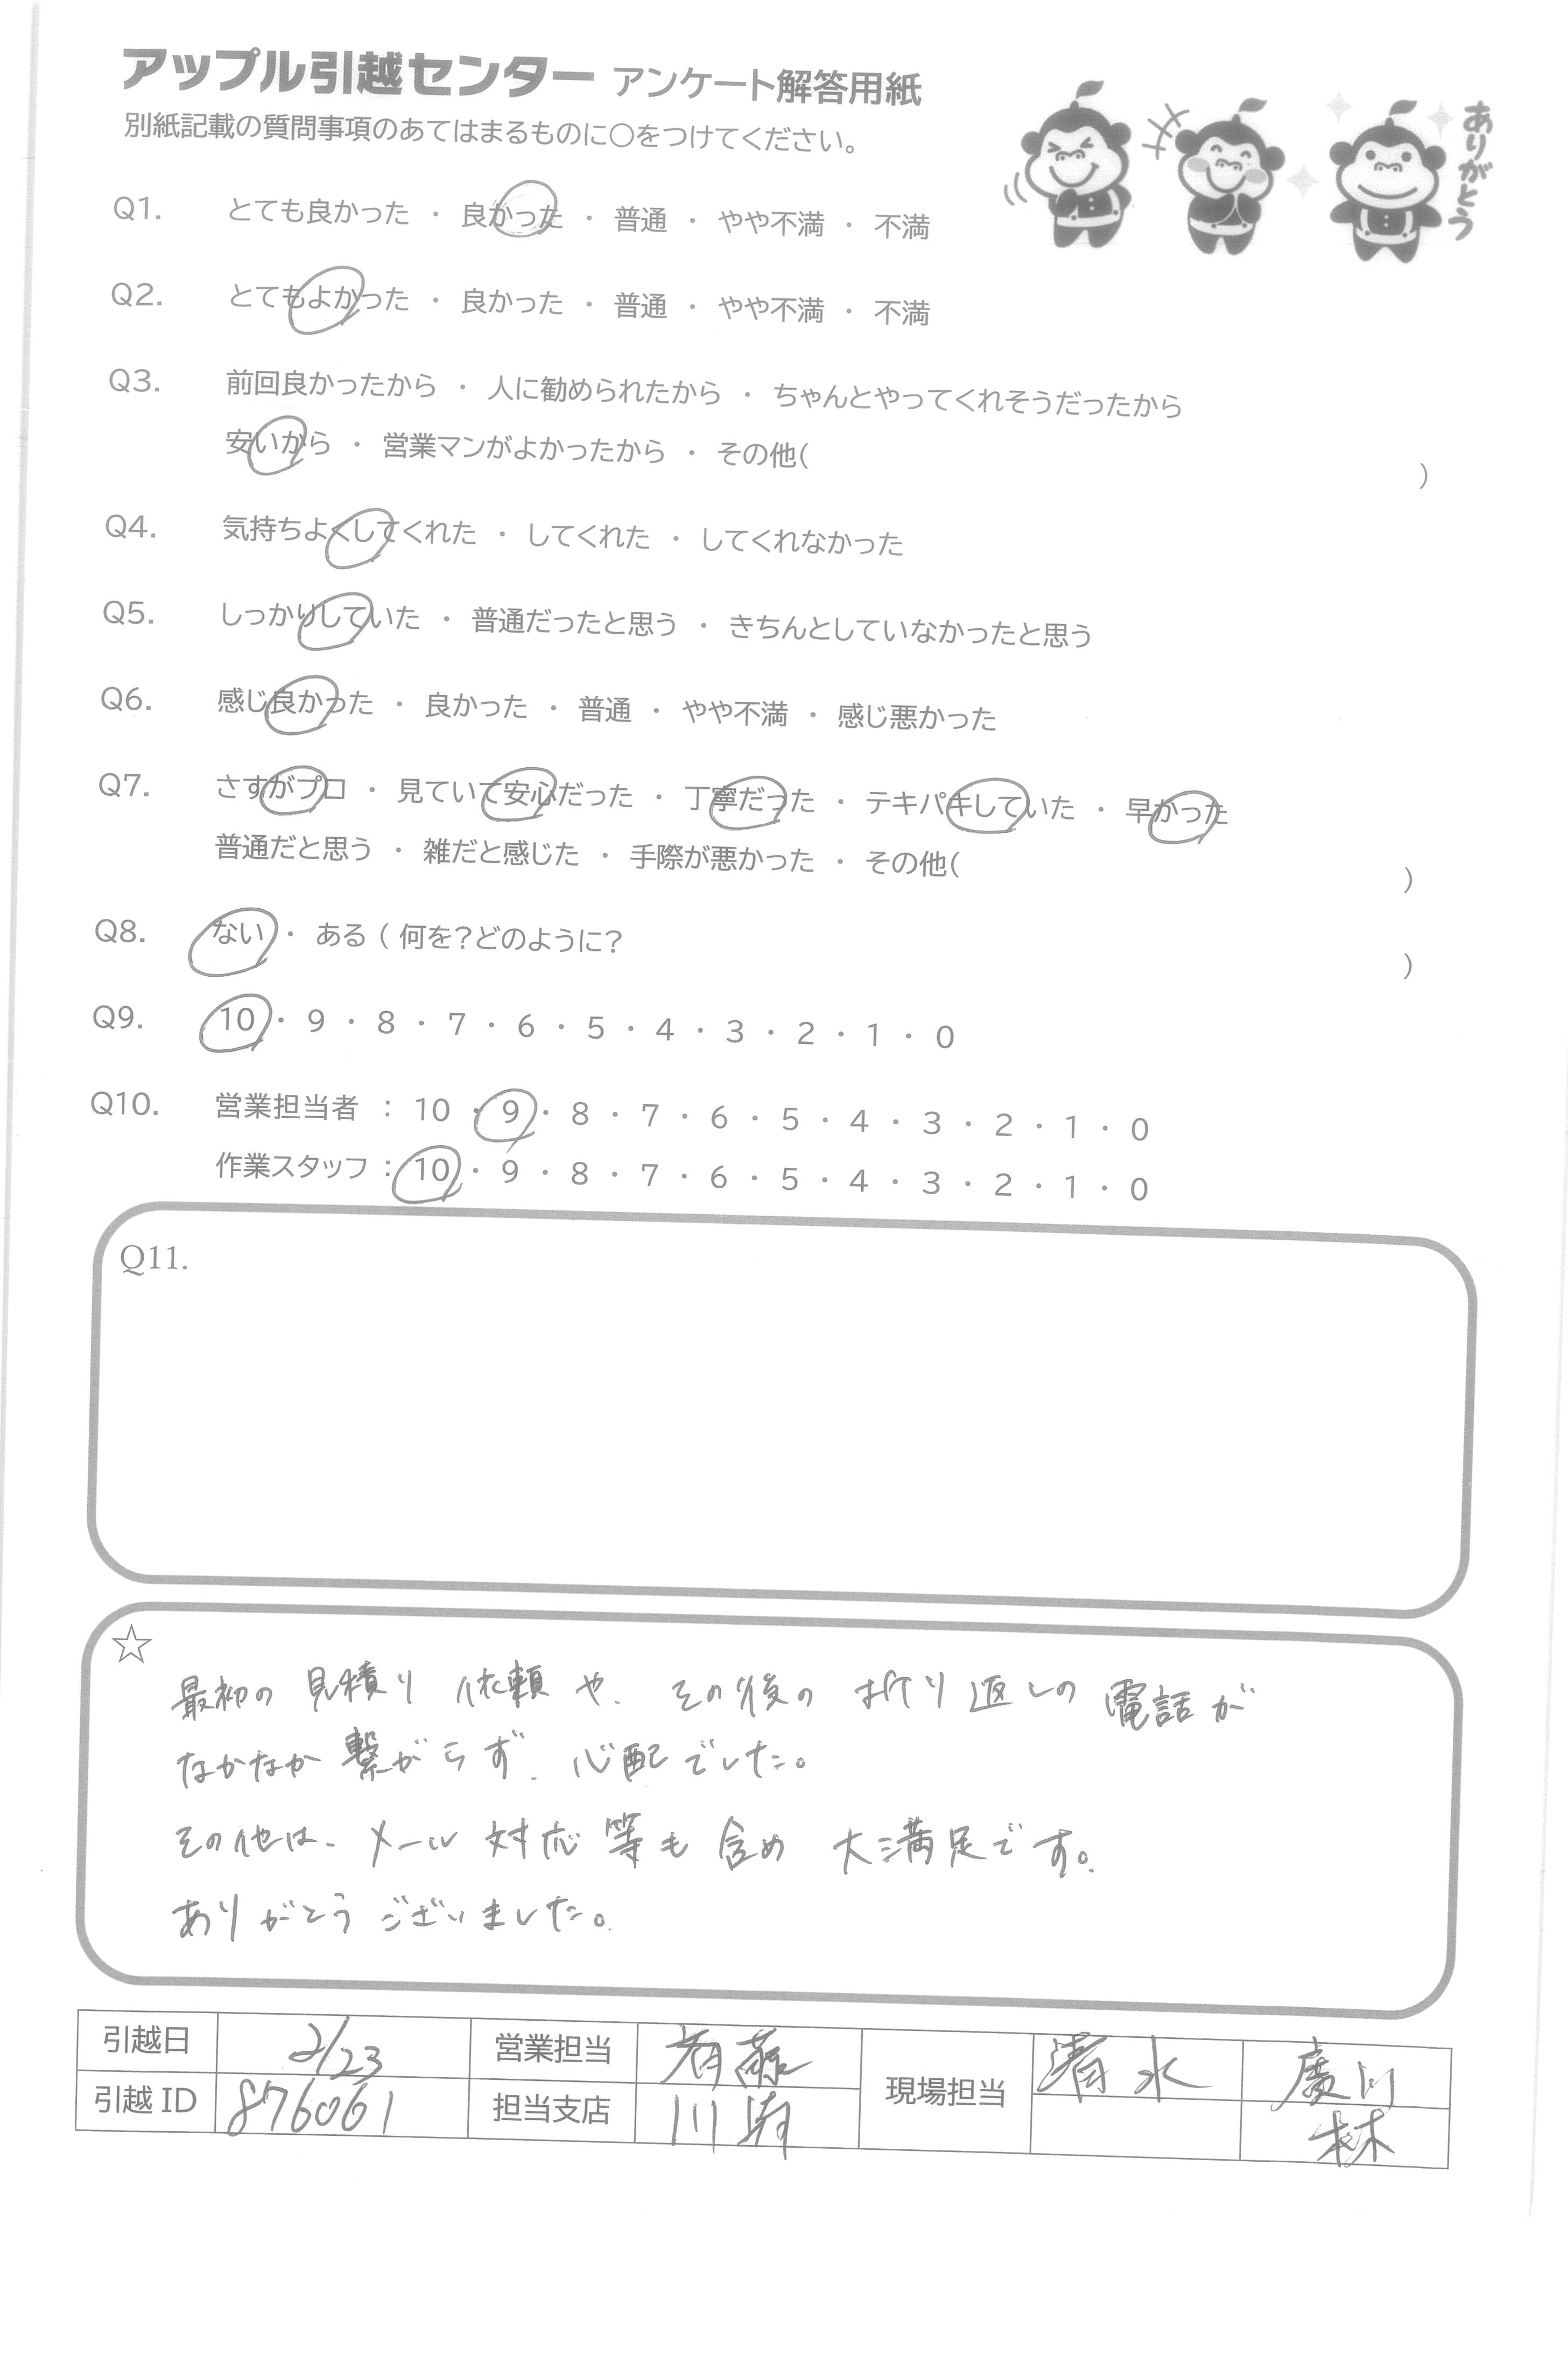 アップル引越センター アンケート解答用紙
別紙記載の質問事項のあてはまるものに○をつけてください。
ありがとう
Q1. とても良かった ・ 良かった ・ 普通 ・ やや不満 ・ 不満
Q2. とてもよかった ・ 良かった ・ 普通 ・ やや不満 ・ 不満
Q3. 前回良かったから ・ 人に勧められたから ・ ちゃんとやってくれそうだったから
安いから ・ 営業マンがよかったから ・ その他( )
Q4. 気持ちよくしてくれた ・ してくれた ・ してくれなかった
Q5. しっかりしていた ・ 普通だったと思う ・ きちんとしていなかったと思う
Q6. 感じ良かった ・ 良かった ・ 普通 ・ やや不満 ・ 感じ悪かった
Q7. さすがプロ ・ 見ていて安心だった ・ 丁寧だった ・ テキパキしていた ・ 早かった
普通だと思う ・ 雑だと感じた ・ 手際が悪かった ・ その他( )
Q8. ない ・ ある ( 何を?どのように? )
Q9. 10 ・ 9 ・ 8 ・ 7 ・ 6 ・ 5 ・ 4 ・ 3 ・ 2 ・ 1 ・ 0
Q10. 営業担当者 : 10 ・ 9 ・ 8 ・ 7 ・ 6 ・ 5 ・ 4 ・ 3 ・ 2 ・ 1 ・ 0
作業スタッフ : 10 ・ 9 ・ 8 ・ 7 ・ 6 ・ 5 ・ 4 ・ 3 ・ 2 ・ 1 ・ 0
Q11.
☆
最初の見積り依頼や、その後の折り返しの電話が
なかなか繋がらず、心配でした。
その他は、メール対応等も含め大満足です。
ありがとうございました。
引越日 2/23 営業担当 斉藤 現場担当 清水 廣川
引越 ID 876061 担当支店 川崎 林